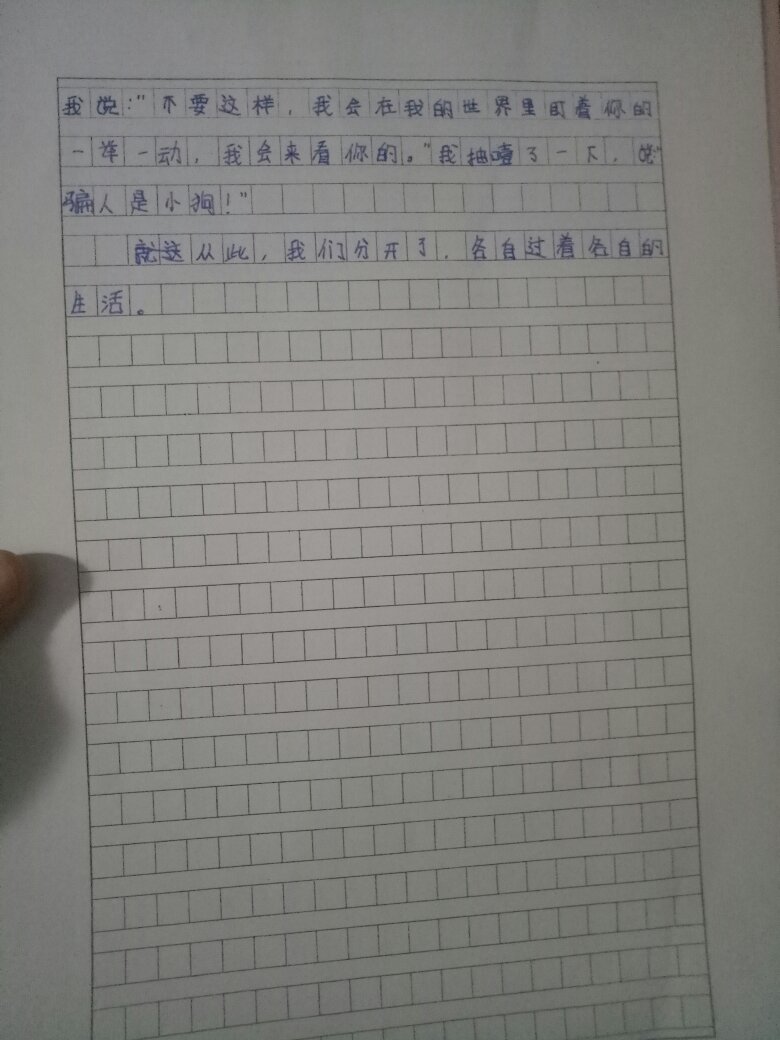 我说:"不要这样，我会在我的世界里盯着你的
一举一动，我会来看你的。"我抽噎了一下，说"
骗人是小狗!"
就这从此，我们分开了，各自过着各自的
生活。